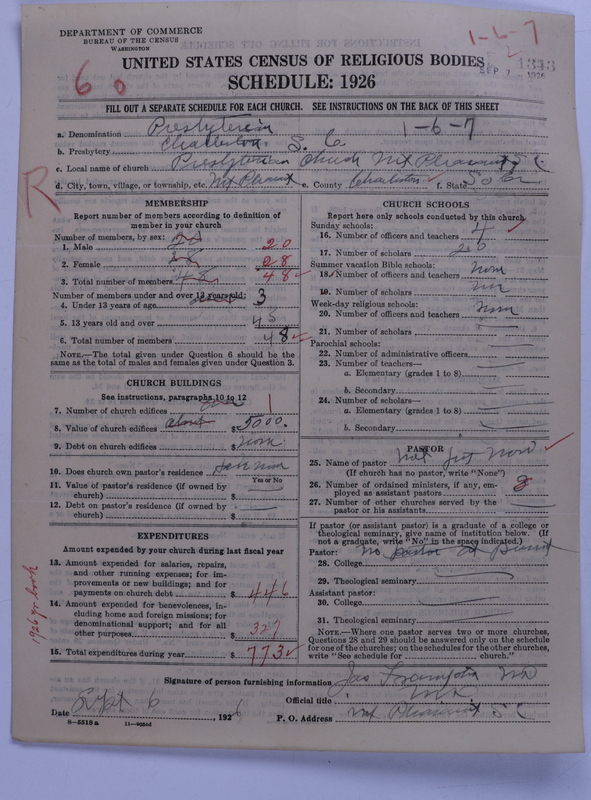 DEPARTMENT OF COMMERCE
BUREAU OF THE CENSUS
WASHINGTON
1-6-7
60
UNITED STATES CENSUS OF RELIGIOUS BODIES
SEP 7 1926
SCHEDULE: 1926
FILL OUT A SEPARATE SCHEDULE FOR EACH CHURCH. SEE INSTRUCTIONS ON THE BACK OF THIS SHEET
a. Denomination Presbyterian 1-6-7
b. Presbytery Charleston, S. C.
c. Local name of church Presbyterian Church Mt Pleasant S C
d. City, town, village, or township, etc. Mt Pleasant e. County Charleston f. State So Ca
R
MEMBERSHIP
Report number of members according to definition of
member in your church
Number of members, by sex:
1. Male 20
2. Female 28
3. Total number of members 48 48
Number of members under and over 13 years old:
4. Under 13 years of age 3
5. 13 years old and over 45
6. Total number of members 48
NOTE.—The total given under Question 6 should be the
same as the total of males and females given under Question 3.
CHURCH BUILDINGS
See instructions, paragraphs 10 to 12
7. Number of church edifices 1
8. Value of church edifices about $5000.
9. Debt on church edifices $ none
10. Does church own pastor's residence
Yes or No
11. Value of pastor's residence (if owned by
church) $
12. Debt on pastor's residence (if owned by
church) $
EXPENDITURES
Amount expended by your church during last fiscal year
13. Amount expended for salaries, repairs,
and other running expenses; for im-
provements or new buildings; and for
payments on church debt $ 446
14. Amount expended for benevolences, in-
cluding home and foreign missions; for
denominational support; and for all
other purposes $ 327
15. Total expenditures during year $ 773
1926 yr. book
CHURCH SCHOOLS
Report here only schools conducted by this church
Sunday schools:
16. Number of officers and teachers 4
17. Number of scholars
Summer vacation Bible schools:
18. Number of officers and teachers None
19. Number of scholars
Week-day religious schools:
20. Number of officers and teachers None
21. Number of scholars
Parochial schools:
22. Number of administrative officers
23. Number of teachers—
a. Elementary (grades 1 to 8)
b. Secondary
24. Number of scholars—
a. Elementary (grades 1 to 8)
b. Secondary
PASTOR
25. Name of pastor Not just now
(If church has no pastor, write "None")
26. Number of ordained ministers, if any, em-
ployed as assistant pastors
27. Number of other churches served by the
pastor or his assistants
If pastor (or assistant pastor) is a graduate of a college or
theological seminary, give name of institution below. (If
not a graduate, write "No" in the space indicated.)
Pastor: No pastor at present
28. College
29. Theological seminary
Assistant pastor:
30. College
31. Theological seminary
NOTE.—Where one pastor serves two or more churches,
Questions 28 and 29 should be answered only on the schedule
for one of the churches; on the schedules for the other churches,
write "See schedule for church."
Signature of person furnishing information Jas Frampton
Official title
Date Sept 6, 1926 P. O. Address Mt Pleasant S C
8—5518a 11—9056d